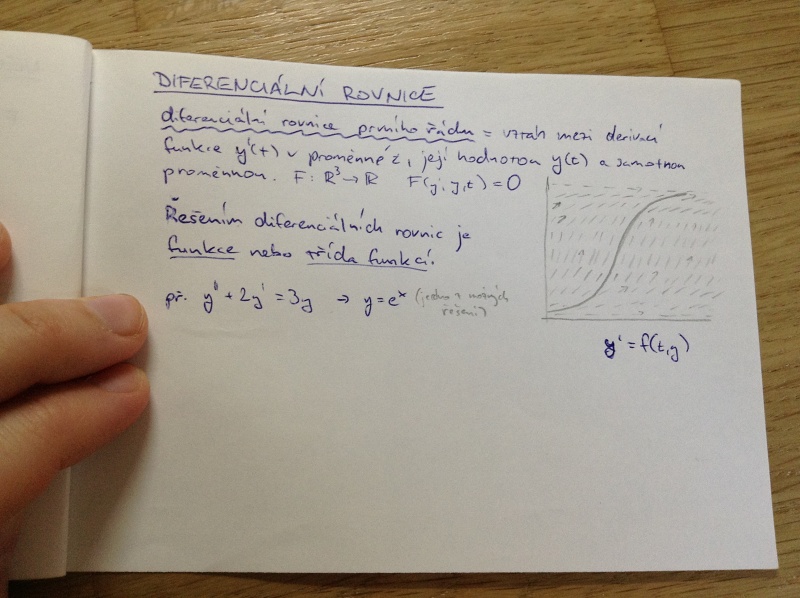 DIFERENCIÁLNÍ ROVNICE
diferenciální rovnice prvního řádu = vztah mezi derivací
funkce y'(t) v proměnné t, její hodnotou y(t) a samotnou
proměnnou. F: ℝ³→ℝ F(y',y,t)=0
Řešením diferenciálních rovnic je
funkce nebo třída funkcí.
př. y'' + 2y' = 3y → y = eˣ (jedno z možných
řešení)
y' = f(t,y)